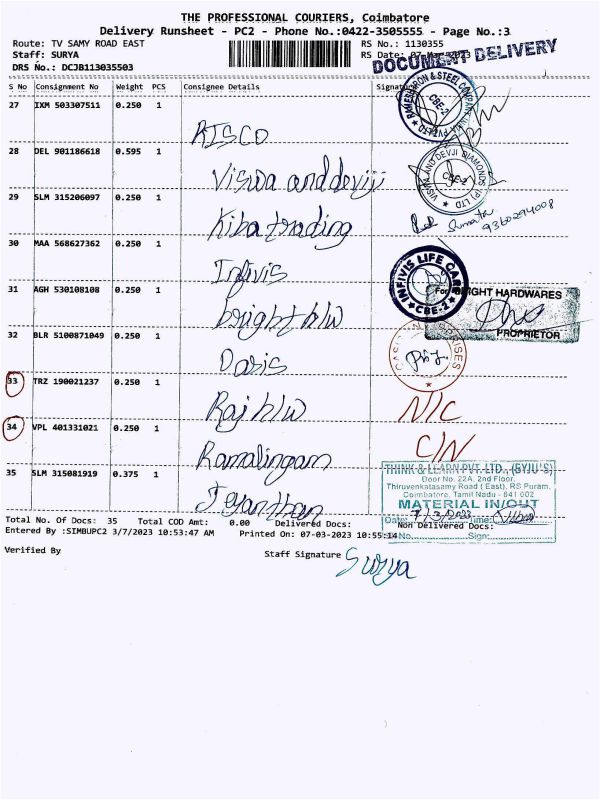 THE PROFESSIONAL COURIERS, Coimbatore
Delivery Runsheet - PC2 - Phone No.:0422-3505555 - Page No.:3
Route: TV SAMY ROAD EAST
RS No.: 1130355
Staff: SURYA
RS Date: 07-Mar-2023
DOCUMENT DELIVERY
DRS No.: DCJB113035503
S No Consignment No Weight PCS Consignee Details Signature
27 IXM 503307511 0.250 1
RISCO
RAMESH IRON & STEEL COMPANY PVT LTD CBE-2
28 DEL 901186618 0.595 1
Viswa and devji
VISWA AND DEVJI DIAMONDS (P) LTD CBE-2
29 SLM 315206097 0.250 1
Kiba trading
9360294008
30 MAA 568627362 0.250 1
Infivis
INFIVIS LIFE CARE CBE-2
31 AGH 530108108 0.250 1
bright h/w
For BRIGHT HARDWARES
PROPRIETOR
32 BLR 5100871049 0.250 1
Oasis
33 TRZ 190021237 0.250 1
Raj h/w N/C
34 VPL 401331021 0.250 1
Ramalingam C/N
35 SLM 315081919 0.375 1
Jeyanthan
THINK & LEARN PVT. LTD., (BYJU'S)
Door No. 22A, 2nd Floor,
Thiruvenkatasamy Road (East), RS Puram,
Coimbatore, Tamil Nadu - 641 002
MATERIAL IN/OUT
Date: 7/3/2023 Time:
No. Sign:
Total No. Of Docs: 35 Total COD Amt: 0.00 Delivered Docs: Non Delivered Docs:
Entered By :SIMBUPC2 3/7/2023 10:53:47 AM Printed On: 07-03-2023 10:55:14
Verified By Staff Signature Surya